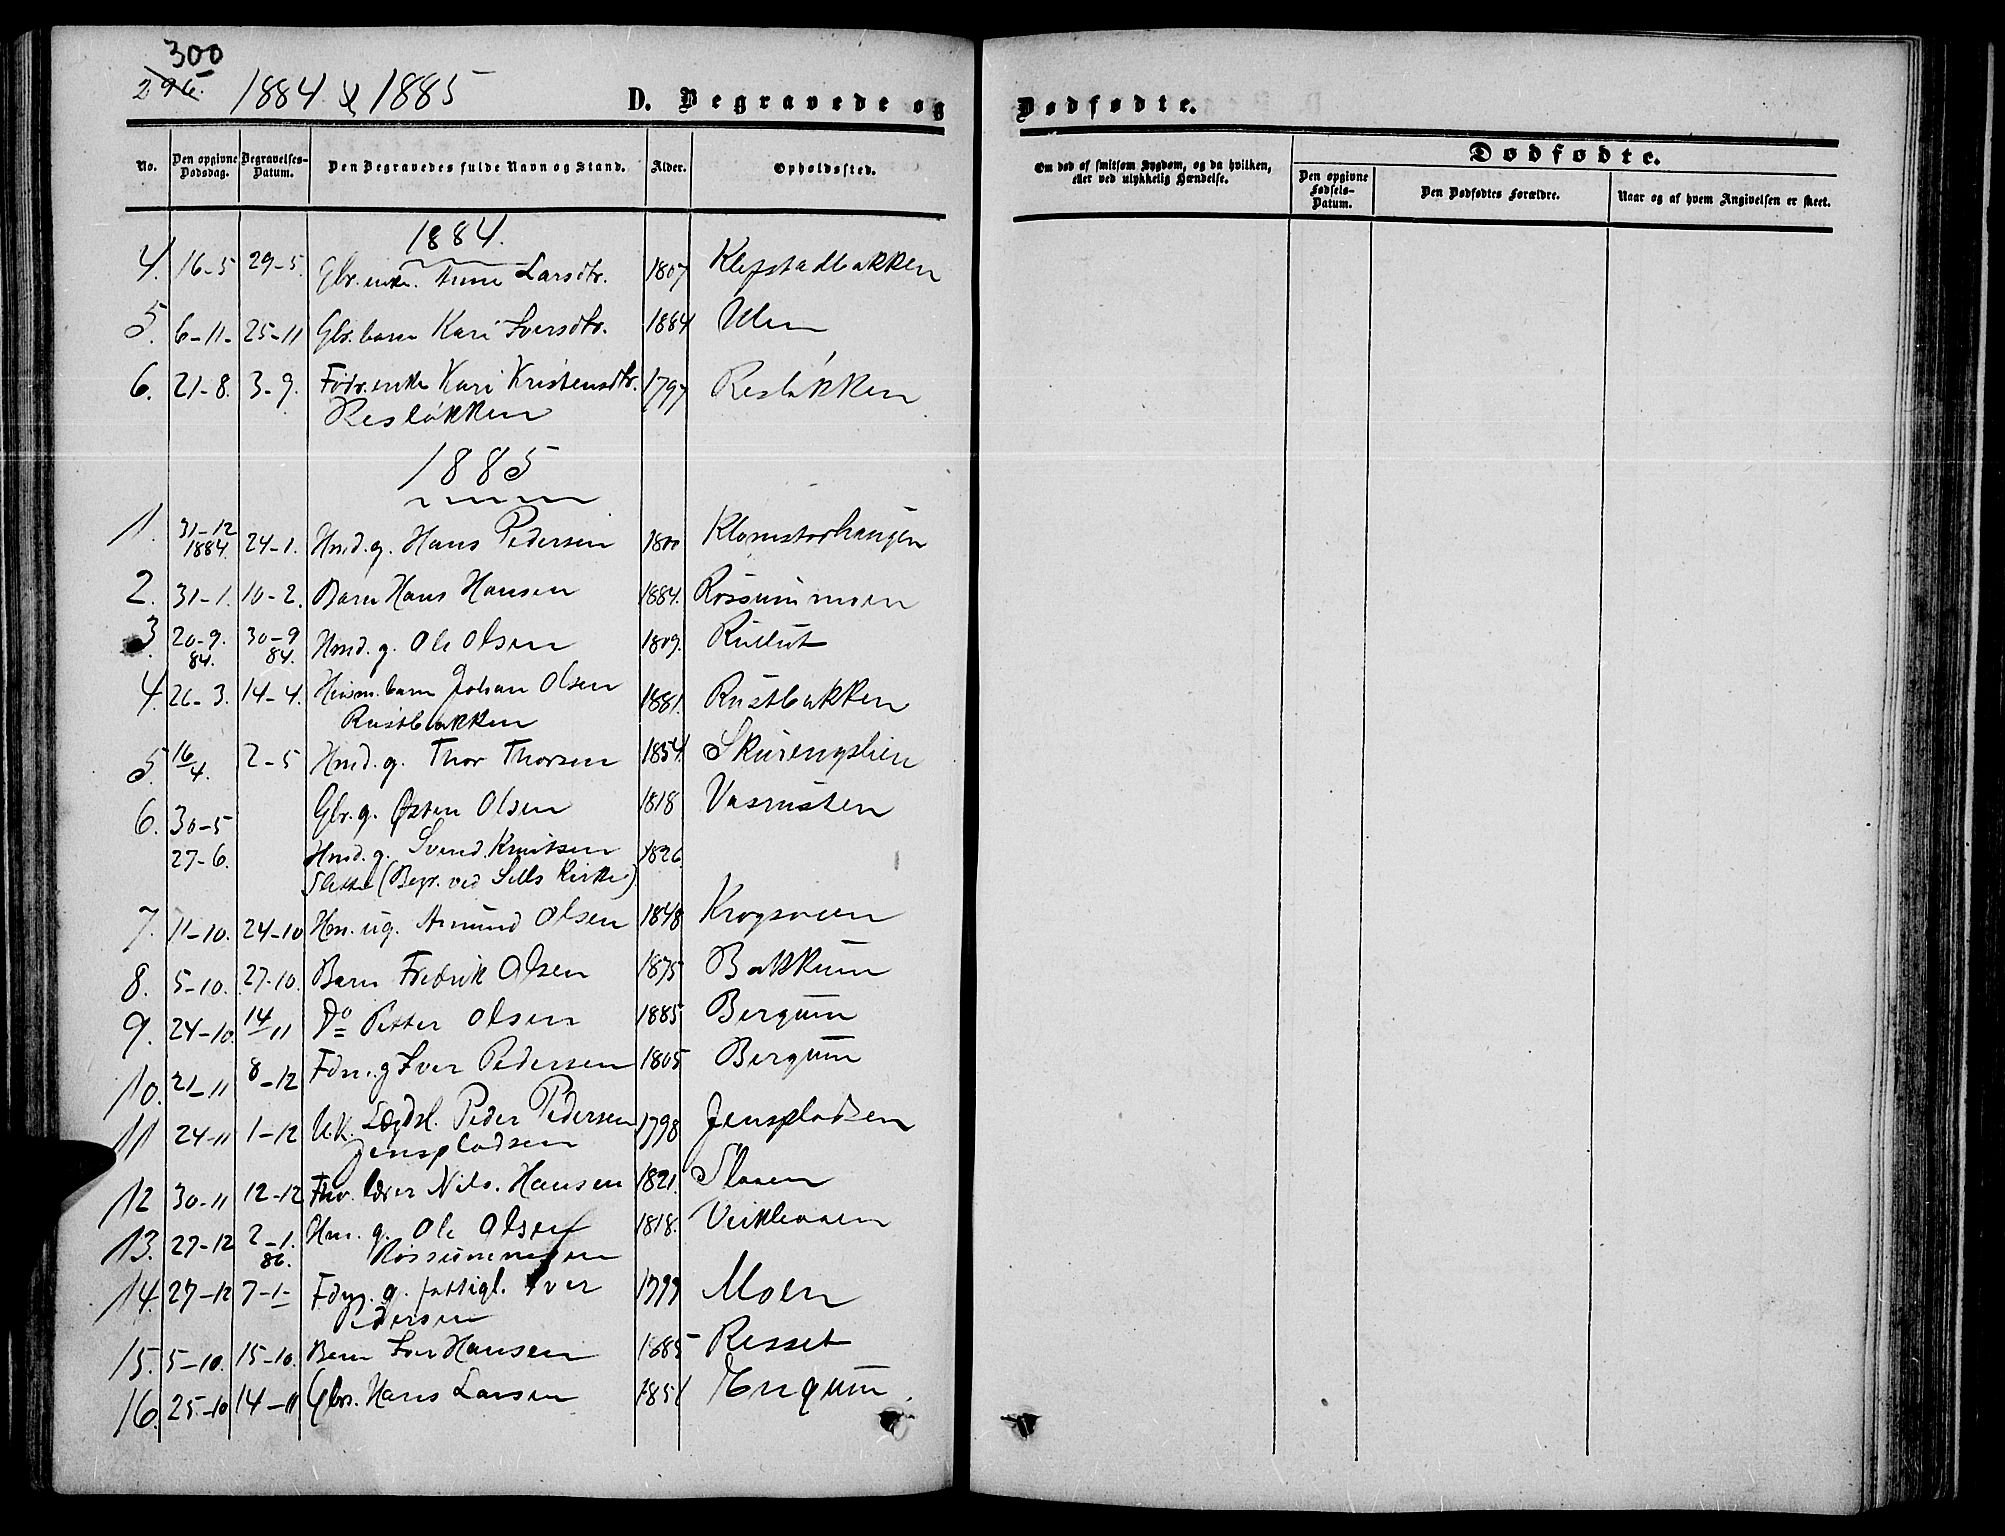 300
296.
1884 & 1885
D. Begravede og Dødfødte.
No. Den opgivne Dødsdag. Begravelses-Datum. Den Begravedes fulde Navn og Stand. Alder. Opholdssted.
Om død af smitsom Sygdom, og da hvilken, eller ved ulykkelig Hændelse.
Dødfødte.
Den opgivne Fødsels-Datum. Den Dødfødtes Forældre. Naar og af hvem Angivelsen er skeet.
1884.
4. 16-5 29-5. Gbr. enke. Anne Larsdtr. 1807 Klefstadbakken
5. 6-11- 25-11 Gbr. barn Kari Iversdtr. 1884 Ulen
6. 21-8. 3-9. Fødr. enke Kari Kristensdtr. 1797 Resløkken
Resløkken
1885
1. 31-12 1884. 24-1. Hmd. g. Hans Pedersen 1800 Klomstadhaugen
2. 31-1. 10-2. Barn Hans Hansen 1884. Rossummoen
3. 20-9. 84. 30-9 84. Hmd. g. Ole Olsen 1809. Rullut
4. 26-3. 14-4. Husm. barn Johan Olsen 1881. Rustbakken
Rustbakken
5. 16/4. 2-5 Hmd. g. Thor Thorsen 1854. Skurengslien
6. 30-5 Gbr. g. Østen Olsen 1818 Vasrusten
27-6. Hmd. g. Svend Knutsen 1826.
(Begr. ved Sells Kirke)
7. 11-10. 24-10 Hm. ug. Amund Olsen 1848 Krogsveen
8. 5-10. 27-10. Barn Fredrik Olsen 1875 Bakkum
9. 24-10 14/11 Do Petter Olsen 1885 Bergum
10. 21-11 8-12 Fdm. g Iver Pedersen 1805 Bergum
11 24-11 1-12 U.K. Lægdsl. Peder Pedersen 1798 Jenspladsen
Jenspladsen
12 30-11 12-12 Fhv. lærer Nils. Hansen 1821. Sloaen
13. 27-12 2-1. 86. Hm. g. Ole Olsen 1818.
Rossummoen
14. 27-12 7-1- Fdm. g. fattigl. Iver 1799 Moen
Pedersen
15. 5-10. 15-10. Barn Iver Hansen 1885 Resset
16. 25-10 14-11 Gbs. Hans Larsen 1851 Engum.